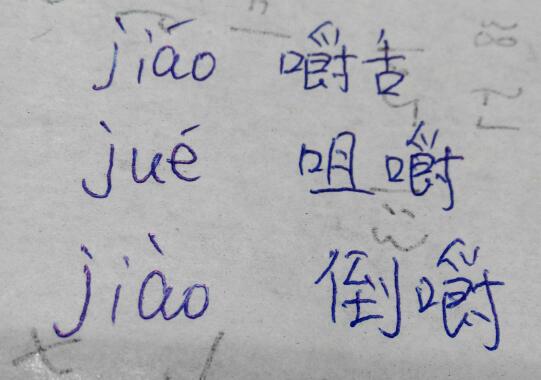 jiáo 嚼舌
jué 咀嚼
jiào 倒嚼